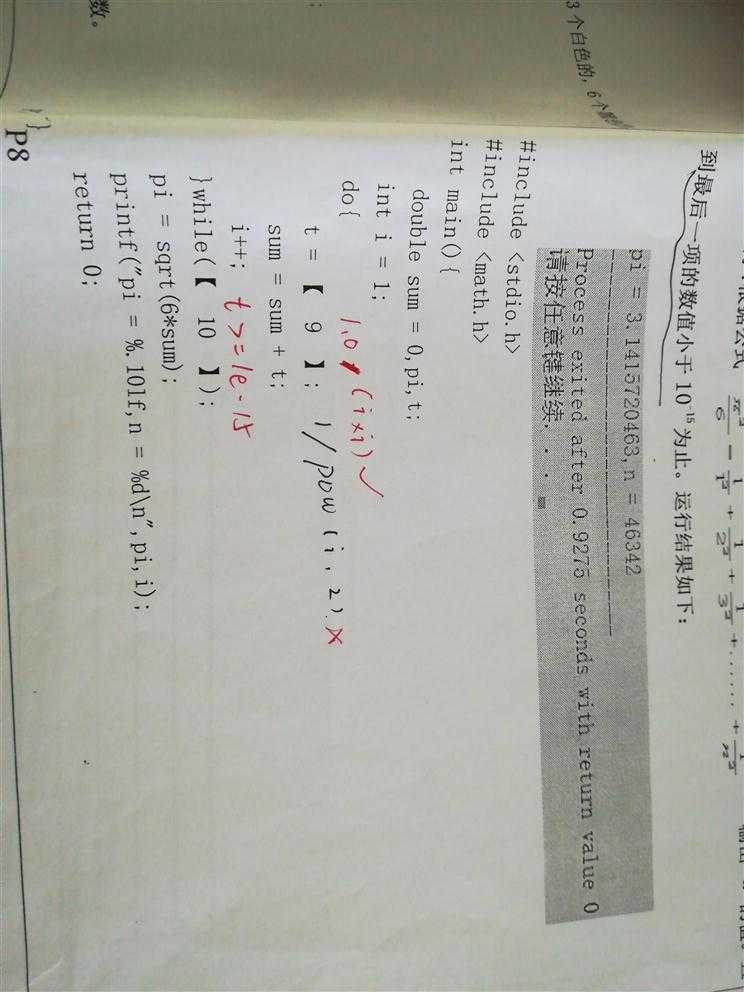 3 个白色的, 6 个
数。
}
P8
根据公式 π²/6 = 1/1² + 1/2² + 1/3² + ....... + 1/n²
到最后一项的数值小于 10⁻¹⁵ 为止。运行结果如下:
pi = 3.1415720463, n = 46342
Process exited after 0.9275 seconds with return value 0
请按任意键继续. . .
#include <stdio.h>
#include <math.h>
int main(){
double sum = 0,pi,t;
int i = 1;
do{
1.0/(i×i) ✓
t = 【 9 】; 1/pow(i,2). ×
sum = sum + t;
i++; t>=1e-15
}while(【 10 】);
pi = sqrt(6*sum);
printf("pi = %.10lf,n = %d\n",pi,i);
return 0;